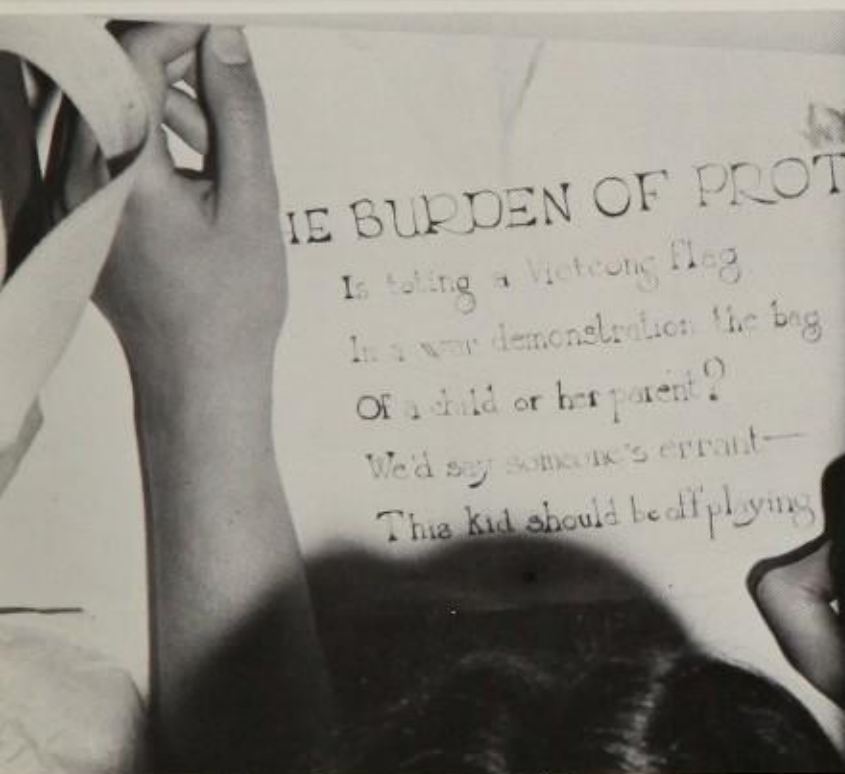 IE BURDEN OF PROT
Is toting a Vietcong flag
In a war demonstration the bag
Of a child or her parent?
We'd say someone's errant—
This kid should be off playing